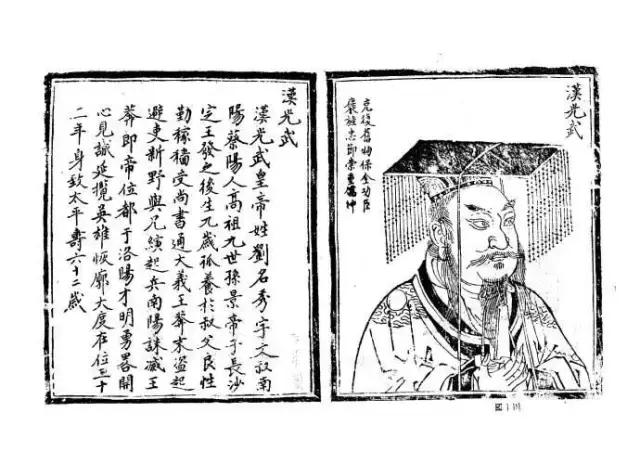 漢光武
克復舊物保全功臣
褒旌忠節崇重
漢光武
漢光武皇帝姓劉名秀字文叔南
陽蔡陽人高祖九世孫景帝子長沙
定王發之後生九歲孤養於叔父良性
勤稼穡受尚書通大義王莽末盜起
避吏新野與兄縯起兵南陽誅滅王
莽即帝位都于洛陽才明勇畧開
心見誠延攬英雄恢廓大度在位三十
二年身致太平壽六十二歲
圖